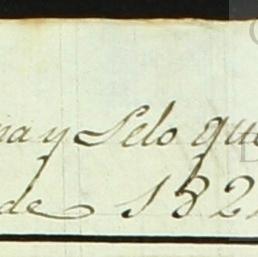 na y Pelo que
de 182